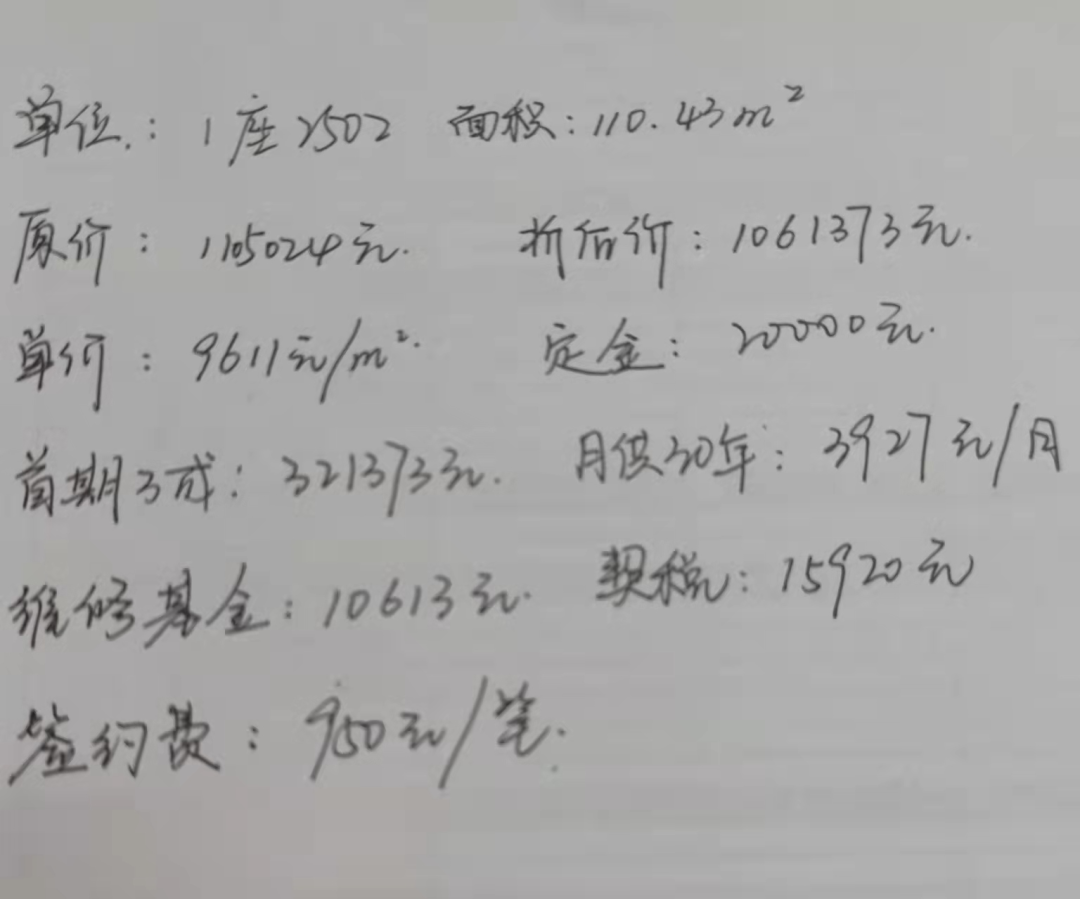 单位：1座2502 面积：110.43m²
原价：1105024元. 折后价：1061373元.
单价：9611元/m². 定金：20000元.
首期3成：321373元. 月供30年：3927元/月
维修基金：10613元. 契税：15920元
签约费：950元/笔.